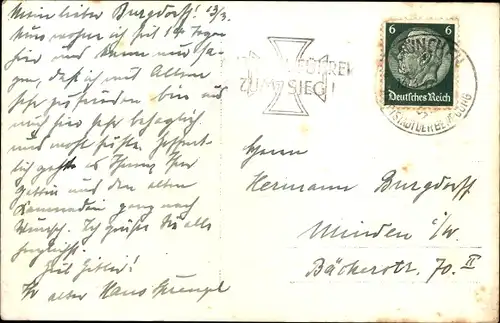 Mein lieber Burgdorff! 13/3.
Nun wohne ich seit 10 Tagen
hier und kann nur sa-
gen, daß ich mit Allem
sehr zufrieden bin und
mich hier sehr behaglich
und wohl fühle. Hoffent-
lich geht es Ihnen, Ihrer
Gattin und den alten
Kameraden ganz nach
Wunsch. Ich grüße Sie alle
herzlichst.
Heil Hitler!
Ihr alter Hans Sprengel
FÜHRER
ZUM SIEG!
6 6
Deutsches Reich
MÜNCHEN
HAUPTSTADT DER BEWEGUNG
Herrn
Hermann Burgdorff
Minden i/W.
Bäckerstr. 70 II